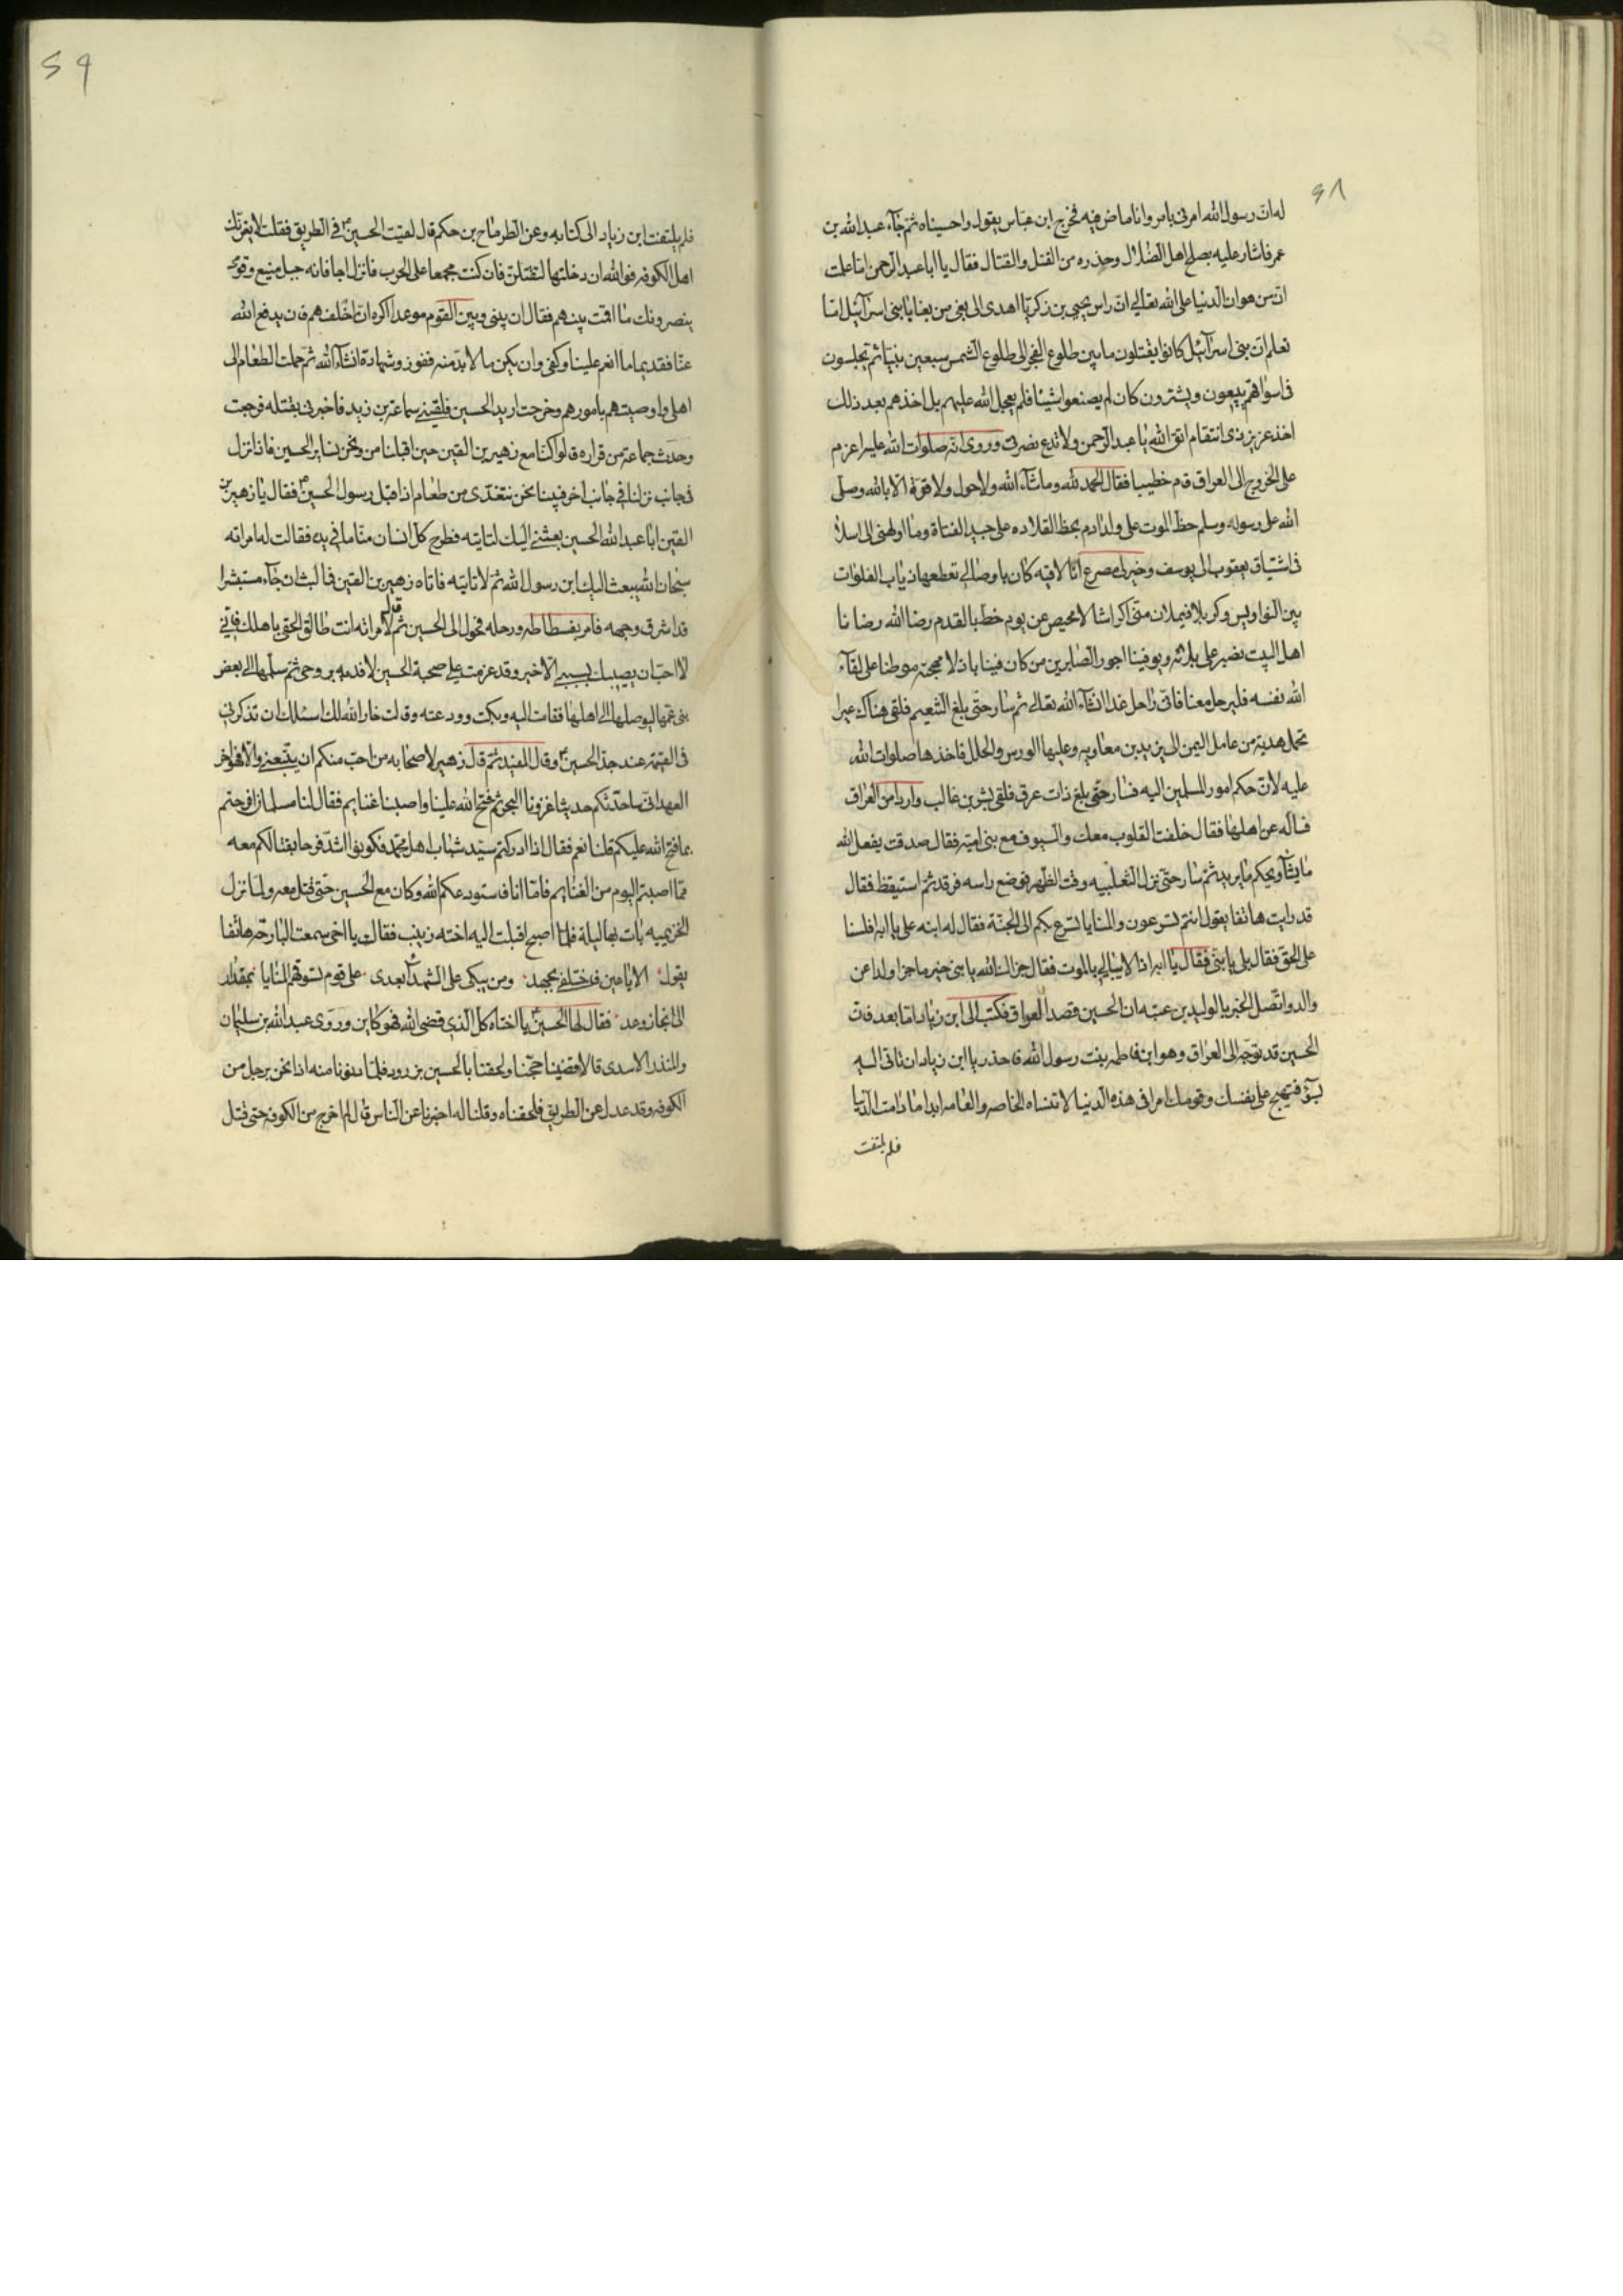 ٢٨
له ان رسول الله امرنى بامر وانا ماض فيه فخرج ابن عباس يقول واحسيناه ثم جآء عبد الله بن
عمر فاشار عليه بصلح اهل الضلال وحذره من القتل والقتال فقال يا ابا عبد الرحمن اما علمت
ان من هوان الدنيا على الله تعالى ان راس يحيى بن زكريا اهدى الى بغى من بغايا بنى اسرآئيل اما
تعلم ان بنى اسرآئيل كانوا يقتلون ما بين طلوع الفجر الى طلوع الشمس سبعين نبيا ثم يجلسون
فى اسواقهم يبيعون ويشترون كان لم يصنعوا شيئا فلم يعجل الله عليهم بل اخذهم بعد ذلك
اخذ عزيز ذى انتقام اتق الله يا ابا عبد الرحمن ولا تدع نصرتى وروى انه صلوات الله عليه لما عزم
على الخروج الى العراق قام خطيبا فقال الحمد لله وما شآء الله ولا حول ولا قوة الا بالله وصلى
الله على رسوله وسلم خط الموت على ولد ادم مخط القلاده على جيد الفتاة وما اولهنى الى اسلافى
اشتياق يعقوب الى يوسف وخير لى مصرع انا لاقيه كان باوصالى تقطعها ذياب الفلوات
بين النواويس وكربلا فيملان منى اكراشا لا محيص عن يوم خط بالقدم رضا الله رضانا
اهل البيت نصبر على بلائه ويوفينا اجور الصابرين من كان فينا باذلا مهجته موطنا على لقآء
الله نفسه فليرحل معنا فانى راحل غدا انشآء الله تعالى ثم سار حتى بلغ التنعيم فلقى هناك عيرا
تحمل هدية من عامل اليمن الى يزيد بن معاويه وعليها الورس والحلل فاخذها صلوات الله
عليه لان حكم امور المسلمين اليه فسار حتى بلغ ذات عرق فلقى بشر بن غالب واردا من العراق
فساله عن اهلها فقال خلفت القلوب معك والسيوف مع بنى اميه فقال صدقت يفعل الله
ما يشآء ويحكم ما يريد ثم سار حتى نزل الثعلبيه وقت الظهر فوضع راسه فرقد ثم استيقظ فقال
قد رايت هاتفا يقول انتم تسرعون والمنايا تسرع بكم الى الجنة فقال له ابنه على يا ابه افلسنا
على الحق فقال بلى يا بنى فقال يا ابه اذا لا نبالى بالموت فقال جزاك الله يا بنى خير ما جزا ولدا عن
والد واتصل الخبر بالوليد بن عتبه ان الحسين قصد العراق فكتب الى ابن زياد اما بعد فان
الحسين قد توجه الى العراق وهو ابن فاطمه بنت رسول الله فاحذر يا ابن زياد ان تاتى اليه
بسوء فتهيج على نفسك وقومك امرا فى هذه الدنيا لا تنساه الخاصه والعامه ابدا ما دامت الدنيا
فلم يلتفت
٢٩
فلم يلتفت ابن زياد الى كتابه وعن الطرماح بن حكم قال لقيت الحسين فى الطريق فقلت لا يغرنك
اهل الكوفه فوالله ان دخلتها لتقتلن فان كنت مجمعا على الحرب فانزل اجا فانه جبل منيع وقومى
ينصرونك ما اقمت بينهم فقال ان بينى وبين القوم موعدا اكره ان اخلفهم فان يدفع الله
عنا فقديما ما انعم علينا وكفى وان يكن ما لا بد منه ففوز وشهادة انشآء الله ثم حملت الطعام الى
اهلى واوصيتهم بامورهم وخرجت اريد الحسين فلقينى سماعة بن زيد فاخبرنى بقتله فرجعت
وحدث جماعة من فزاره قالوا كنا مع زهير بن القين حين اقبلنا من ونحن نساير الحسين فاذا نزل
فى جانب نزلنا فى جانب اخر فبينا نحن نتغدى من طعام اذا قبل رسول الحسين فقال يا زهير بن
القين ابا عبد الله الحسين بعثنى اليك لتاتيه فطرح كل انسان منا ما فى يده فقالت له امراته
سبحان الله يبعث اليك ابن رسول الله ثم لا تاتيه فاتاه زهير بن القين فما لبث ان جآء مستبشرا
قد اشرق وجهه فامر بفسطاطه ورحله فحول الى الحسين ثم قال لامراته انت طالق الحقى باهلك فانى
لا احب ان يصيبك بسببى الا خير وقد عزمت على صحبة الحسين لافديه بروحى ثم سلمها الى بعض
بنى عمها ليوصلها الى اهلها فقامت اليه وبكت وودعته وقالت خار الله لك اسئلك ان تذكرنى
فى القيمة عند جد الحسين وقال المفيد ثم قال زهير لاصحابه من احب منكم ان يتبعنى والا فهو اخر
العهد انى ساحدثكم حديثا غزونا البحر ثم فتح الله علينا واصبنا غنايم فقال لنا سلمان افرحتم
بما فتح الله عليكم قلنا نعم فقال اذا ادركتم سيد شباب اهل محمد فكونوا اشد فرحا بقتالكم معه
مما اصبتم اليوم من الغنايم فاما انا فاستودعكم الله وكان مع الحسين حتى قتل معه ولما نزل
الخزيميه بات بها ليلة فلما اصبح اقبلت اليه اخته زينب فقالت يا اخى سمعت البارحة هاتفا
يقول الا يا عين فاحتفلى بجهد ومن يبكى على الشهدآء بعدى على قوم تسوقهم المنايا بمقدار
الى انجاز وعد فقال لها الحسين يا اختاه كل الذى قضى الله فهو كاين وروى عبد الله بن سليمان
والمنذر الاسدى قالا قضينا حجنا ولحقنا بالحسين بزرود فلما دنونا منه اذا نحن برجل من
الكوفه وقد عدل عن الطريق فلحقناه وقلنا له اخبرنا عن الناس قال لم اخرج من الكوفه حتى قتل